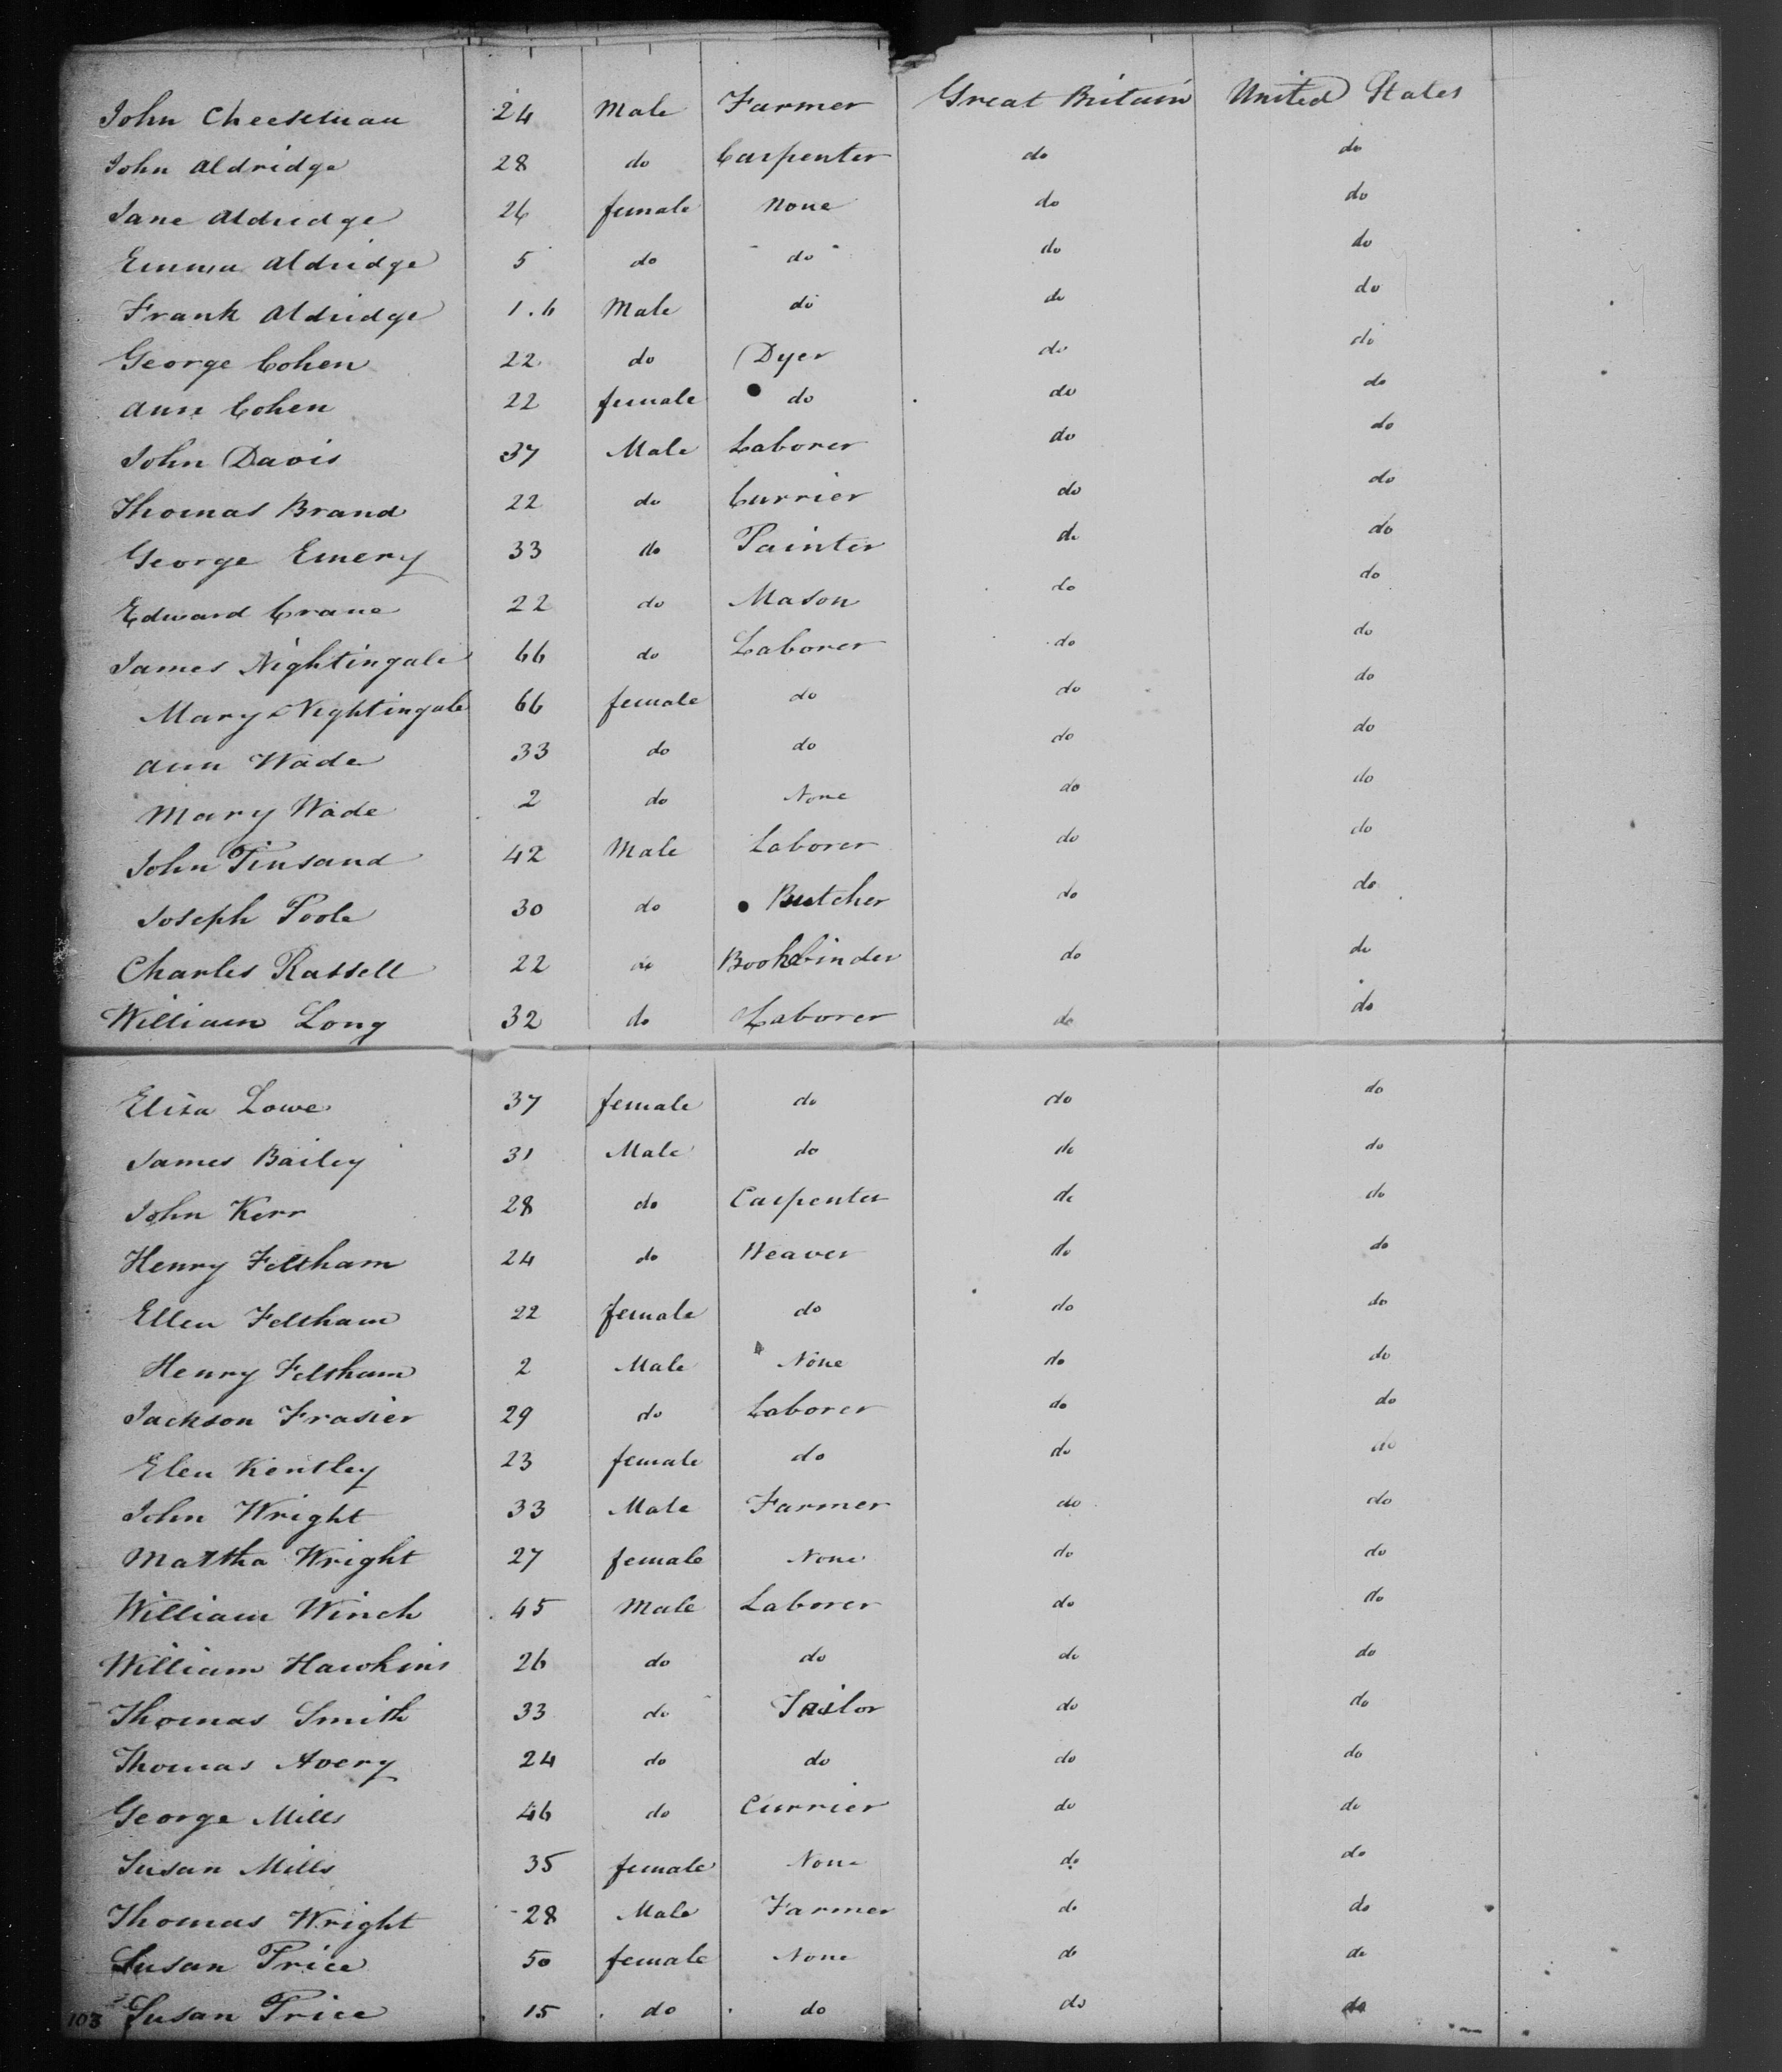 John Cheeseman 24 Male Farmer Great Britain United States
John Aldridge 28 do Carpenter do do
Jane Aldridge 26 female None do do
Emma Aldridge 5 do do do do
Frank Aldridge 1.6 Male do do do
George Cohen 22 do Dyer do do
Ann Cohen 22 female do do do
John Davis 37 Male Laborer do do
Thomas Brand 22 do Currier do do
George Emery 33 do Painter do do
Edward Crane 22 do Mason do do
James Nightingale 66 do Laborer do do
Mary Nightingale 66 female do do do
Ann Wade 33 do do do do
Mary Wade 2 do None do do
John Tinsand 42 Male Laborer do do
Joseph Poole 30 do Butcher do do
Charles Rassell 22 do Bookbinder do do
William Long 32 do Laborer do do
Eliza Lowe 37 female do do do
James Bailey 31 Male do do do
John Kerr 28 do Carpenter do do
Henry Feltham 24 do Weaver do do
Ellen Feltham 22 female do do do
Henry Feltham 2 Male None do do
Jackson Frasier 29 do Laborer do do
Elen Kentley 23 female do do do
John Wright 33 Male Farmer do do
Martha Wright 27 female None do do
William Winch 45 Male Laborer do do
William Hawkins 26 do do do do
Thomas Smith 33 do Tailor do do
Thomas Avery 24 do do do do
George Mills 46 do Currier do do
Susan Mills 35 female None do do
Thomas Wright 28 Male Farmer do do
Susan Price 50 female None do do
103 Susan Price 15 do do do do